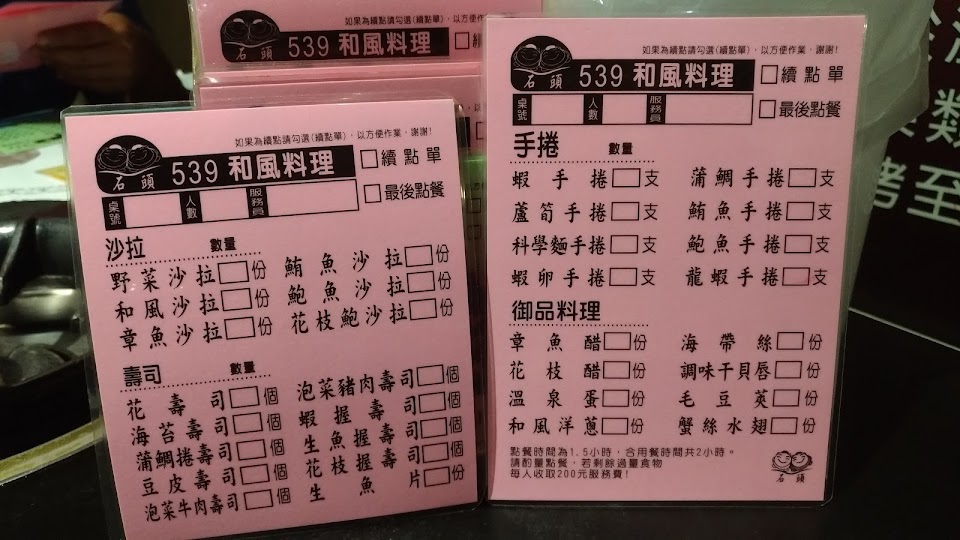 如果為續點請勾選(續點單)，以方便作業，謝謝!
石頭
539 和風料理
如果為續點請勾選(續點單)，以方便作業，謝謝!
石頭 539 和風料理 □續點單
桌號 人數 服務員 □最後點餐
沙拉 數量
野菜沙拉□份 鮪魚沙拉□份
和風沙拉□份 鮑魚沙拉□份
章魚沙拉□份 花枝鮑沙拉□份
壽司 數量
花壽司□個 泡菜豬肉壽司□個
海苔壽司□個 蝦握壽司□個
蒲鯛捲壽司□個 生魚握壽司□個
豆皮壽司□個 花枝握壽司□個
泡菜牛肉壽司□個 生魚片□份
如果為續點請勾選(續點單)，以方便作業，謝謝!
石頭 539 和風料理 □續點單
桌號 人數 服務員 □最後點餐
手捲 數量
蝦手捲□支 蒲鯛手捲□支
蘆筍手捲□支 鮪魚手捲□支
科學麵手捲□支 鮑魚手捲□支
蝦卵手捲□支 龍蝦手捲□支
御品料理
章魚醋□份 海帶絲□份
花枝醋□份 調味干貝唇□份
溫泉蛋□份 毛豆莢□份
和風洋蔥□份 蟹絲水翅□份
點餐時間為1.5小時，含用餐時間共2小時。
請酌量點餐，若剩餘過量食物
每人收取200元服務費!
石頭